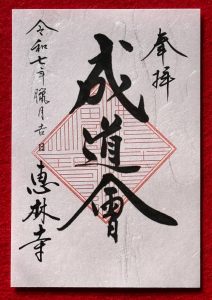 奉拝
成道會
令和七年臘月吉日
恵林寺